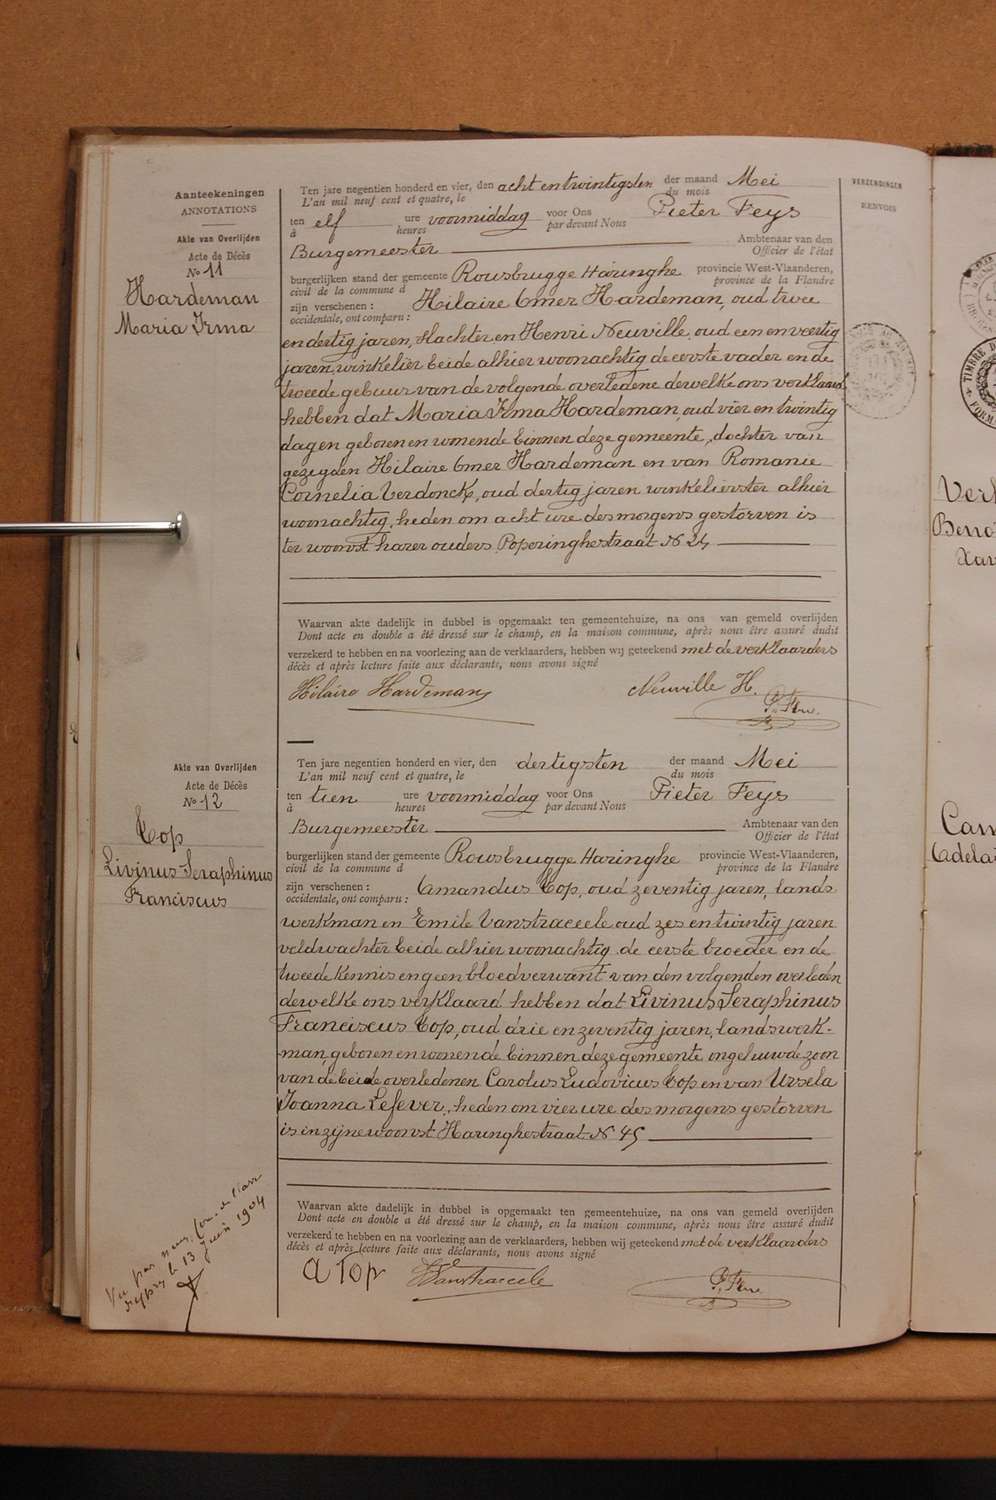 Aanteekeningen
ANNOTATIONS
Akte van Overlijden
Acte de Décès
No 11
Hardeman
Maria Irma
Ten jare negentien honderd en vier, den acht en twintigsten der maand Mei
L'an mil neuf cent et quatre, le du mois
ten elf ure voormiddag voor Ons Pieter Feys
à heures par devant Nous
Burgemeester Ambtenaar van den
Officier de l'état
burgerlijken stand der gemeente Rousbrugge Haringhe provincie West-Vlaanderen,
civil de la commune d province de la Flandre
zijn verschenen : Hilaire Omer Hardeman, oud twee
occidentale, ont comparu :
en dertig jaren, slachter en Henri Neuville, oud een en veertig
jaren, winkelier beide alhier woonachtig de eerste vader en de
tweede gebuur van de volgende overledene dewelke ons verklaard
hebben dat Maria Irma Hardeman, oud vier en twintig
dagen geboren en wonende binnen deze gemeente, dochter van
gezegden Hilaire Omer Hardeman en van Romanie
Cornelia Verdonck, oud dertig jaren winkelierster alhier
woonachtig, heden om acht ure des morgens gestorven is
ter woonst harer ouders Poperinghestraat N 24
Waarvan akte dadelijk in dubbel is opgemaakt ten gemeentehuize, na ons van gemeld overlijden
Dont acte en double a été dressé sur le champ, en la maison commune, après nous être assuré dudit
verzekerd te hebben en na voorlezing aan de verklaarders, hebben wij geteekend met de verklaarders
décès et après lecture faite aux déclarants, nous avons signé
Hilaire Hardeman Neuville H.
Akte van Overlijden
Acte de Décès
No 12
Cop
Livinus Seraphinus
Franciscus
Ten jare negentien honderd en vier, den dertigsten der maand Mei
L'an mil neuf cent et quatre, le du mois
ten tien ure voormiddag voor Ons Pieter Feys
à heures par devant Nous
Burgemeester Ambtenaar van den
Officier de l'état
burgerlijken stand der gemeente Rousbrugge Haringhe provincie West-Vlaanderen,
civil de la commune d province de la Flandre
zijn verschenen : Amandus Cop, oud zeventig jaren, lands
occidentale, ont comparu :
werkman en Emile Vanstraceele oud zes en twintig jaren
veldwachter beide alhier woonachtig de eerste broeder en de
tweede kennis en geen bloedverwant van den volgenden overleden
dewelke ons verklaard hebben dat Livinus Seraphinus
Franciscus Cop, oud drie en zeventig jaren, landswerk-
man, geboren en wonende binnen deze gemeente ongehuwde zoon
van de beide overledenen Carolus Ludovicus Cop en van Ursela
Joanna Lefever, heden om vier ure des morgens gestorven
is in zijne woonst Haringhestraat N 45
Waarvan akte dadelijk in dubbel is opgemaakt ten gemeentehuize, na ons van gemeld overlijden
Dont acte en double a été dressé sur le champ, en la maison commune, après nous être assuré dudit
verzekerd te hebben en na voorlezing aan de verklaarders, hebben wij geteekend met de verklaarders
décès et après lecture faite aux déclarants, nous avons signé
a Top Vanstraceele
Vu par nous,
le 13 Juin 1904
VERZENDINGEN
RENVOIS
TIMBRE